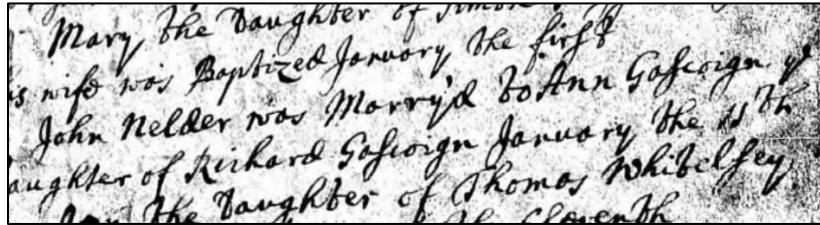 Mary the Daughter of Simon
his wife was Baptized January the first
John Nelder was Marry'd to Ann Gascoign ye
daughter of Richard Gascoign January the 15th
Ann the Daughter of Thomas Whitelsey
the Eleventh